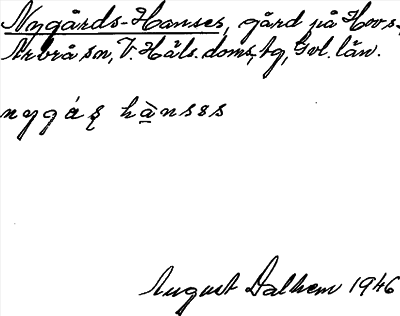 Nygårds-Hanses, gård på Hovs-,
Arbrå sn, V. Häls. doms.tg, Gvl. län.
nygáʂ hànsəs
August Dalhem 1946